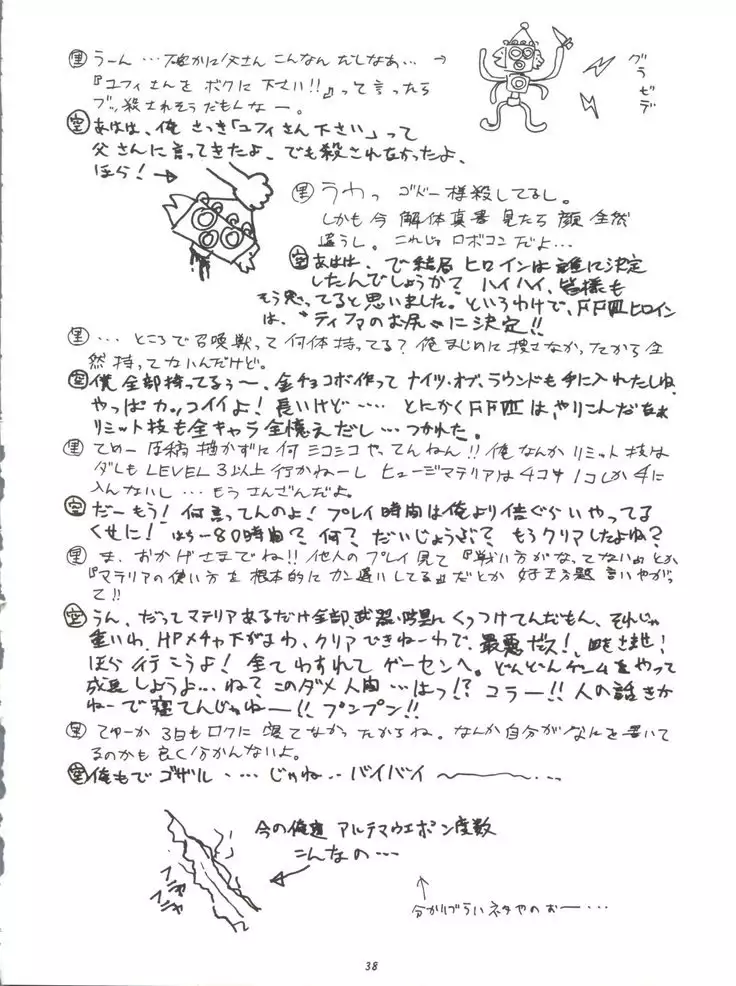 里 うーん…確かに父さんこんなんだしなぁ… →
『ユフィさんをボクに下さい!!』って言ったら
ブッ殺されそうだもんなー。
グラゼデ
空 あはは、俺さっき「ユフィさん下さい」って
父さんに言ってきたよ、でも殺されなかったよ、
ほら! →
里 うわっ ゴドー様殺してるし。
しかも今 解体真書 見たら 顔 全然
違うし。これじゃロボコンだよ…
空 あはは、で結局ヒロインは誰に決定
したんでしょうか? ハイハイ、皆様も
そう思ってると思いました。というわけで、FFⅦヒロイン
は、"ティファのお尻"に決定!!
里 …ところで召喚獣って何体持ってる? 俺まじめに捜さなかったから全
然持ってないんだけど。
空 僕全部持ってるぅ〜、金チョコボ作ってナイツ・オブ・ラウンドも手に入れたしね、
やっぱカッコイイよ! 長いけど…… とにかくFFⅦは、やりこんだなぁ
リミット技も全キャラ全憶えだし…つかれた。
里 てめー原稿描かずに何ニコニコやってんねん!! 俺なんかリミット技は
ダレもLEVEL3以上行かねーし ヒュージマテリアは4コ中1コしか手に
入んないし…もうさんざんだよ。
空 だーもう! 何言ってんのよ! プレイ時間は俺より倍ぐらいやってる
くせに! はら-80時間? 何? だいじょうぶ? もうクリアしたよね?
里 ま、おかげさまでね!! 他人のプレイ見て『戦い方がなってない』とか
『マテリアの使い方を根本的にカン違いしてる』だとか 好き方題言いやがっ
て!!
空 うん、だってマテリアあるだけ全部、武器・防具にくっつけてんだもん、それじゃ
重いわ、HPメチャ下がるわ、クリアできねーわで、最悪だス! 目をさませ!
ほら行こうよ! 全てわすれてゲーセンへ。どんどんゲームをやって
成長しようよ…ね? このダメ人間…はっ!? コラー!! 人の話きか
ねーで寝てんじゃねー!! プンプン!!
里 てゆーか3日もロクに寝てなかったからね。なんか自分がなにを書いて
るのかも良く分かんないよ。
空 俺もでゴザル・…じゃね‥バイバイ〜…
今の俺達 アルテマウエポン度数
こんなの…
フニャ フニャ
↑
分かりづらいネタやのぉー…
38